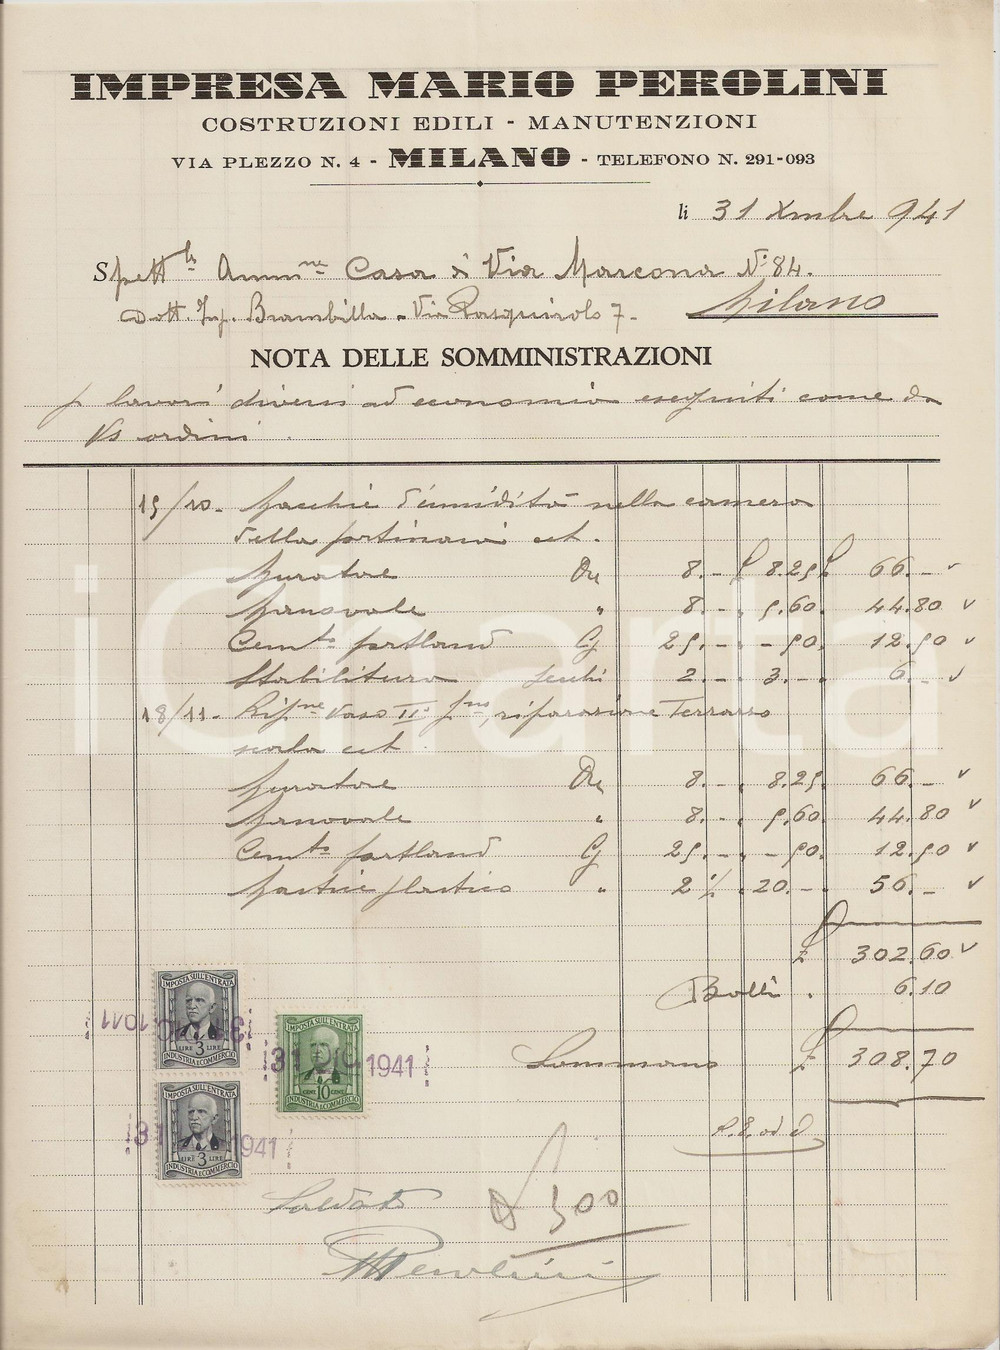 IMPRESA MARIO PEROLINI
COSTRUZIONI EDILI - MANUTENZIONI
VIA PLEZZO N. 4 - MILANO - TELEFONO N. 291-093
li 31 Xmbre 941
Spett.le Amm.ne Casa di Via Marcona N° 84.
Dott. Ing. Brambilla - Via Pasquirolo 7 - Milano
NOTA DELLE SOMMINISTRAZIONI
p lavori diversi ad economia eseguiti come da
Vs ordini.
15/10 - Macchie d'umidità nella camera
della portinaia ect.
Muratore Ore 8.- £ 8.25 £ 66.-
Manovale " 8.- 5.60 44.80
Cem.to portland Cg 25.- -50 12.50
Stabilitura secchi 2.- 3.- 6.-
18/11 - Rip.ne vaso II° p.no, riparazione terrazzo
scala ect.
Muratore Ore 8.- 8.25 66.-
Manovale " 8.- 5.60 44.80
Cem.to portland Cg 25.- -50 12.50
Mastice plastico " 2 20.- 56.-
£ 302.60
Bolli . 6.10
Sommano £ 308.70
S.E. od O.
IMPOSTA SULL'ENTRATA
LIRE 3 LIRE
INDUSTRIA E COMMERCIO
31 DIC 1941
IMPOSTA SULL'ENTRATA
CENT 10 CENT
INDUSTRIA E COMMERCIO
31 DIC 1941
IMPOSTA SULL'ENTRATA
LIRE 3 LIRE
INDUSTRIA E COMMERCIO
31 1941
Saldato
300
MPerolini
iCharta